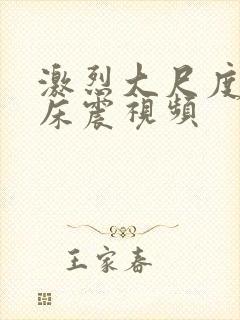 激烈大尺度
床震視頻
王家春